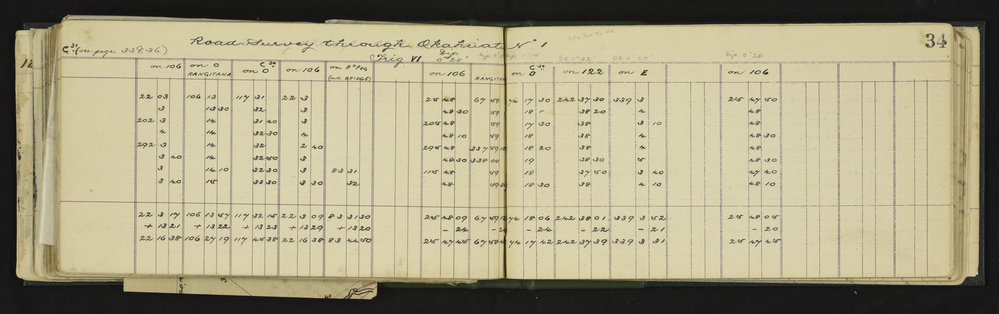 Road Survey through Okahuatiu No 1
34
(see page 33 & 36)
Trig VI
Dip
0° 28'
on 106 on 0 RANGITANA on 0 on 106 on Rd Peg (w.c. BRIDGE) on 106 RANGITANA on 0 on 122 on E on 106
22 03 106 13 117 31 22 3 245 48 67 59 74 17 30 242 37 30 339 3 245 47 50
3 13 30 32 3 48 30 59 18 1 38 20 3 48
202 3 14 31 40 3 205 48 59 17 30 38 3 10 48
4 14 32 30 4 48 10 59 18 38 4 48 30
292 3 14 32 2 40 295 48 337 59 10 18 20 38 4 48
3 40 14 32 50 3 48 30 338 00 19 38 30 5 48 30
3 14 10 32 30 3 83 31 115 48 18 37 50 3 40 47 40
3 40 15 33 30 3 30 32 48 59 30 18 30 38 4 10 48 10
22 3 17 106 13 57 117 32 15 22 3 09 83 31 30 245 48 09 67 59 74 18 06 242 38 01 339 3 52 245 48 05
+ 13 21 + 13 22 + 13 23 + 13 29 + 13 20 - 24 - 24 - 22 - 21 - 20
22 16 38 106 27 19 117 45 38 22 16 38 83 44 50 245 47 45 67 58 74 17 42 242 37 39 339 3 31 245 47 45